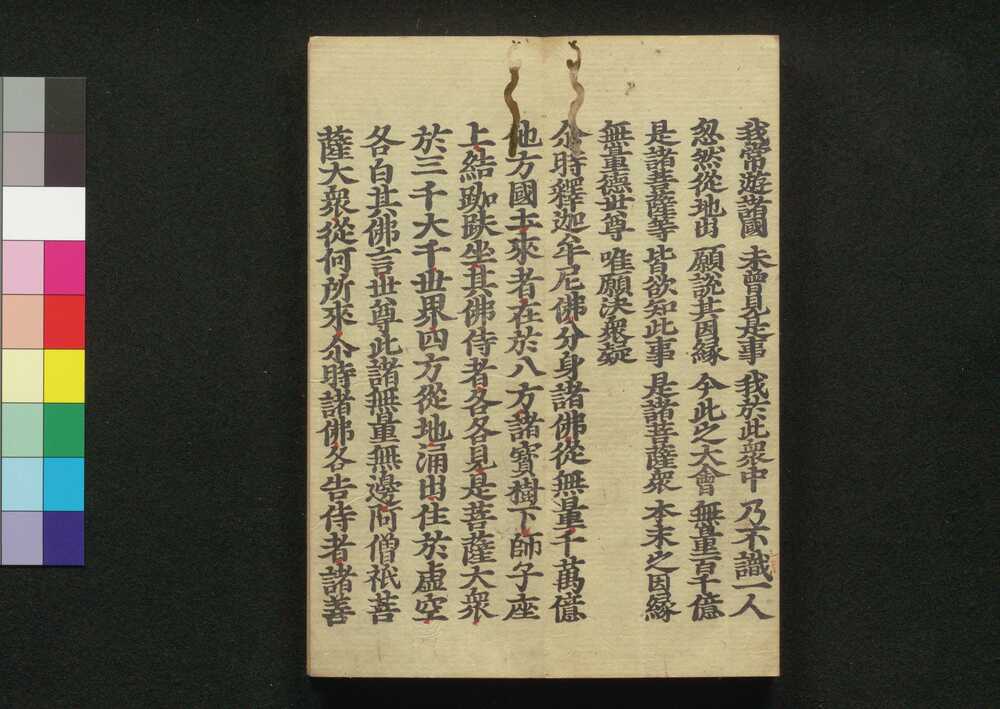 我常遊諸國 未曾見是事 我於此衆中 乃不識一人
忽然從地出 願說其因緣 今此之大會 無量百千億
是諸菩薩等 皆欲知此事 是諸菩薩衆 本末之因緣
無量德世尊 唯願決衆疑
尒時釋迦牟尼佛分身諸佛從無量千萬億
他方國土來者在於八方諸寶樹下師子座
上結跏趺坐其佛侍者各各見是菩薩大衆
於三千大千世界四方從地涌出住於虛空
各白其佛言世尊此諸無量無邊阿僧祇菩
薩大衆從何所來尒時諸佛各告侍者諸善